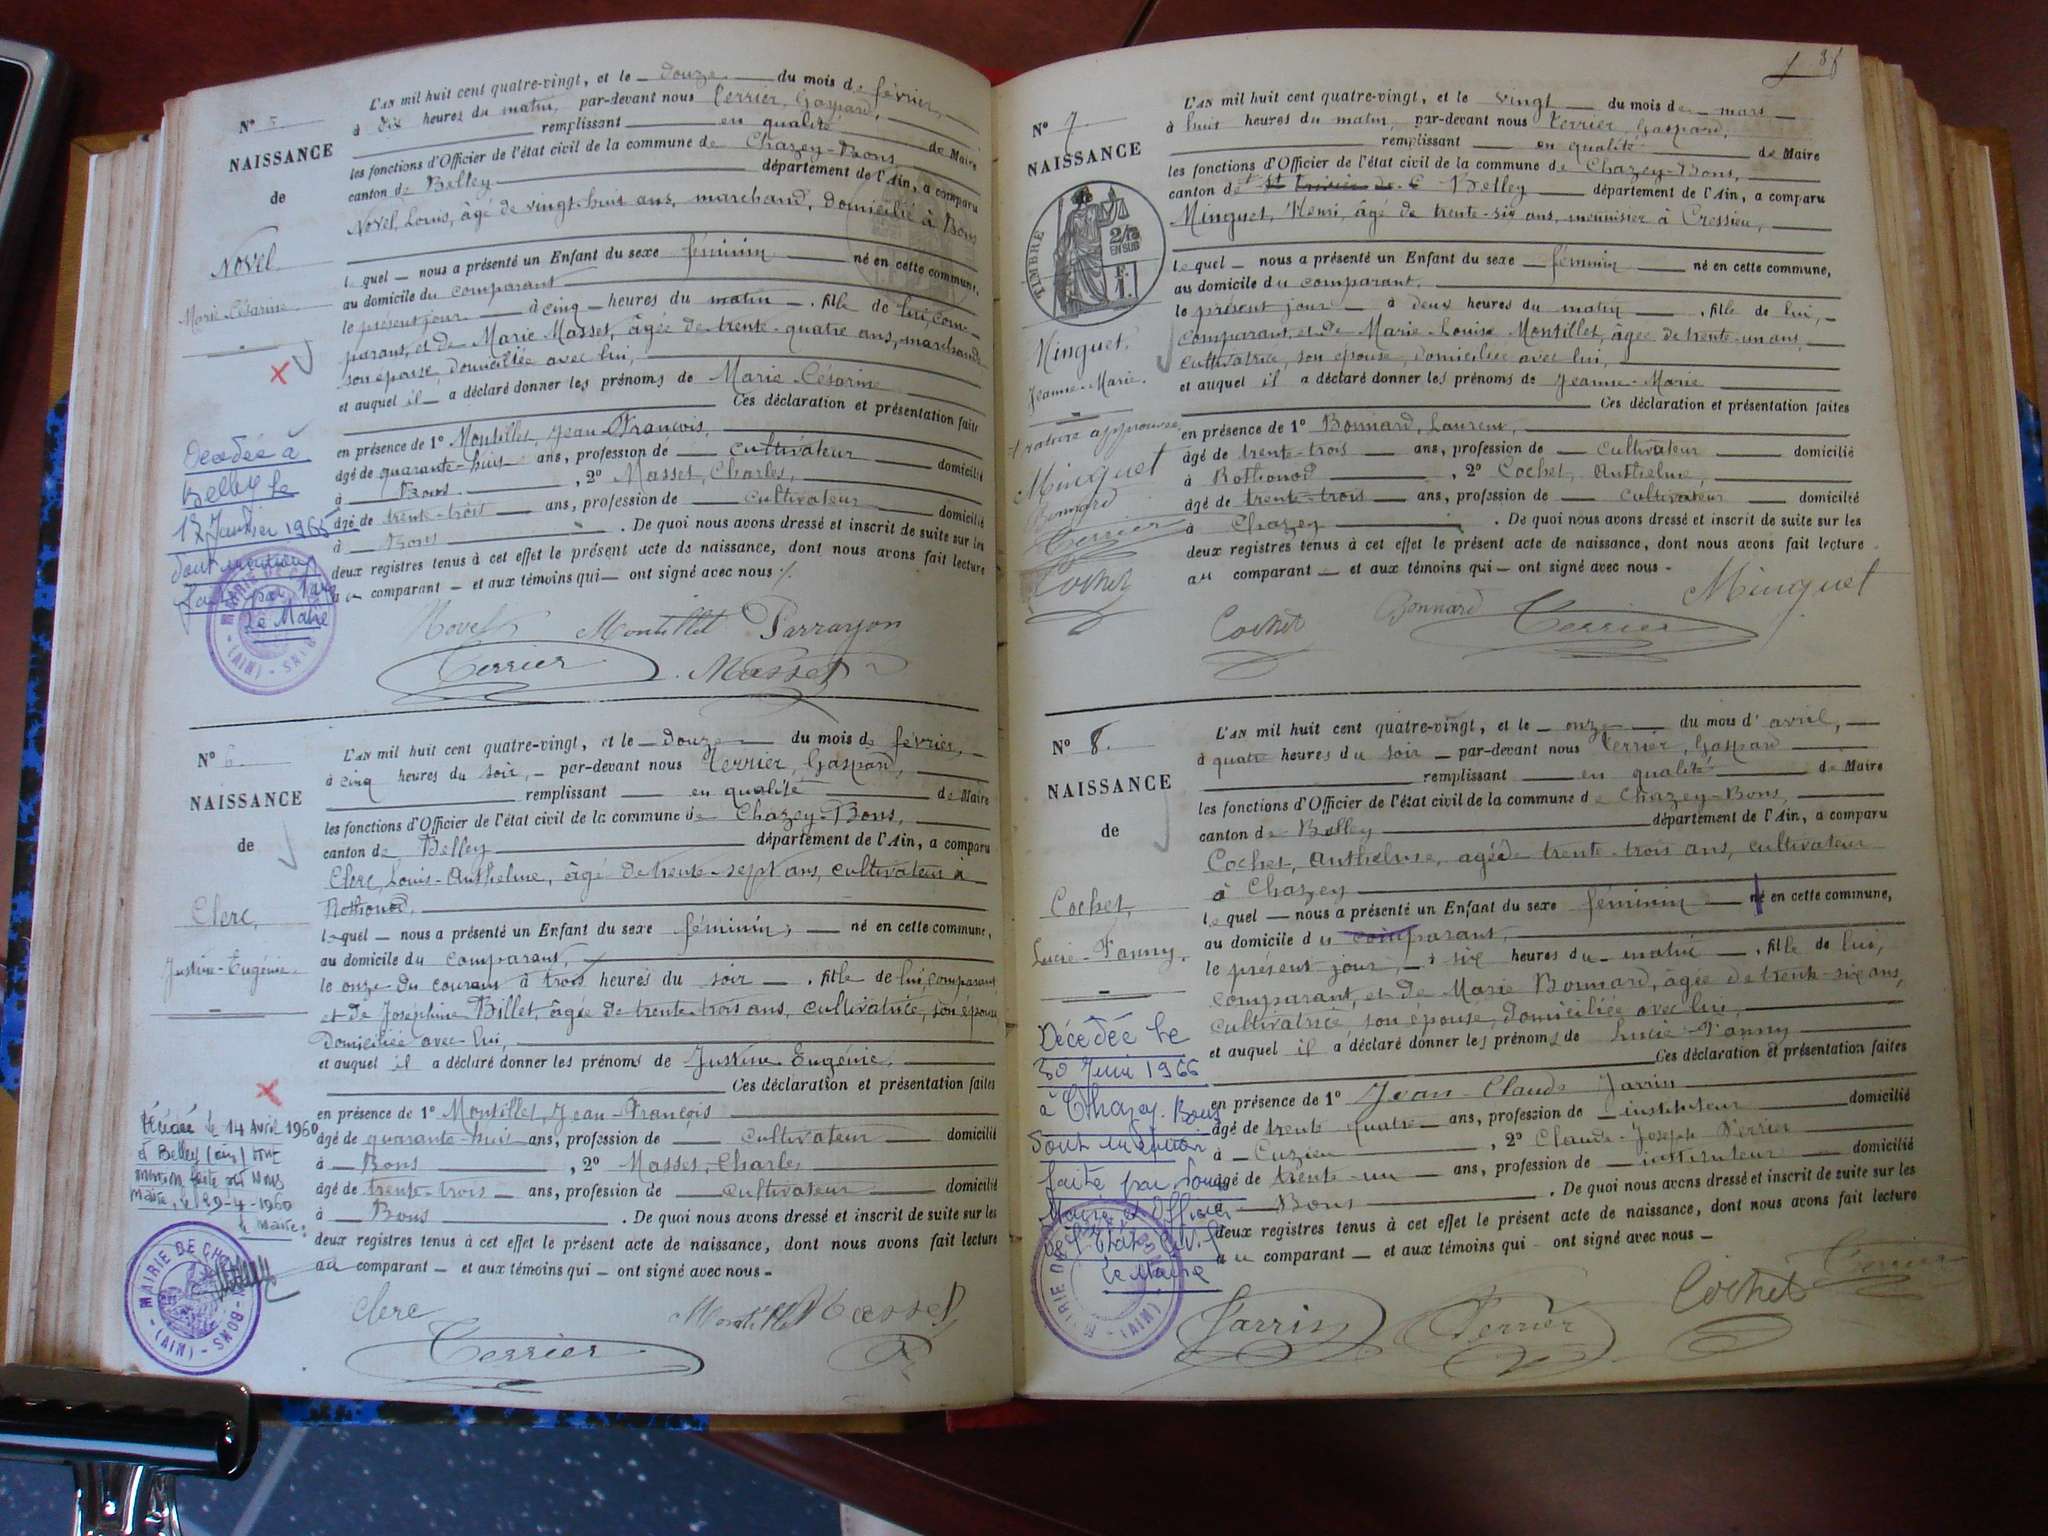 N° 5
NAISSANCE
de
Novel
Marie-Césarine
L'AN mil huit cent quatre-vingt, et le douze du mois de février,
à dix heures du matin, par-devant nous Terrier, Gaspard,
remplissant en qualité de Maire
les fonctions d'Officier de l'état civil de la commune de Chazey-Bons,
canton de Belley département de l'Ain, a comparu
Novel, Louis, âgé de vingt-huit ans, marchand, domicilié à Bons
lequel nous a présenté un Enfant du sexe féminin né en cette commune,
au domicile du comparant
le présent jour à cinq heures du matin . fille de lui, com-
parant, et de Marie Masset, âgée de trente-quatre ans, marchande
son épouse domiciliée avec lui,
et auquel il a déclaré donner les prénoms de Marie Césarine
Ces déclaration et présentation faites
en présence de 1° Montillet, Jean-François,
âgé de quarante-huit ans, profession de cultivateur domicilié
à Bons , 2° Masset, Charles,
âgé de trente-trois ans, profession de cultivateur domicilié
à Bons . De quoi nous avons dressé et inscrit de suite sur les
deux registres tenus à cet effet le présent acte de naissance, dont nous avons fait lecture
au comparant et aux témoins qui ont signé avec nous
Novel Montillet Parrayon
Terrier Masset
Décédée à
Belley le
17 Janvier 1965
dont mention
faite par
Le Maire
MAIRIE DE
(AIN)
N° 6
NAISSANCE
de
Clerc,
Justine-Eugénie
L'AN mil huit cent quatre-vingt, et le douze du mois de février,
à cinq heures du soir, par-devant nous Terrier, Gaspard,
remplissant en qualité de Maire
les fonctions d'Officier de l'état civil de la commune de Chazey-Bons,
canton de Belley département de l'Ain, a comparu
Clerc, Louis-Anthelme, âgé de trente-sept ans, cultivateur à
Rothonod,
lequel nous a présenté un Enfant du sexe féminin, né en cette commune,
au domicile du comparant,
le onze du courant à trois heures du soir . fille de lui, comparant,
et de Joséphine Billet, âgée de trente-trois ans, cultivatrice, son épouse
domiciliée avec lui,
et auquel il a déclaré donner les prénoms de Justine Eugénie
Ces déclaration et présentation faites
en présence de 1° Montillet, Jean-François
âgé de quarante-huit ans, profession de cultivateur domicilié
à Bons , 2° Masset, Charles
âgé de trente-trois ans, profession de cultivateur domicilié
à Bons . De quoi nous avons dressé et inscrit de suite sur les
deux registres tenus à cet effet le présent acte de naissance, dont nous avons fait lecture
au comparant et aux témoins qui ont signé avec nous
Clerc Montillet Masset
Terrier
Décédée le 14 Avril 1960
à Belley (ain) dont
mention faite par Nous
Maire, le 29-4-1960
le Maire.
MAIRIE DE CHAZEY-BONS
(AIN)
N° 7
NAISSANCE
TIMBRE
2/10
EN SUS
Minguet,
Jeanne-Marie.
L'AN mil huit cent quatre-vingt, et le vingt du mois de mars
à huit heures du matin, par-devant nous Terrier, Gaspard,
remplissant en qualité de Maire
les fonctions d'Officier de l'état civil de la commune de Chazey-Bons,
canton de Belley département de l'Ain, a comparu
Minguet, Henri, âgé de trente-six ans, meunisier à Cressieu,
lequel nous a présenté un Enfant du sexe féminin né en cette commune,
au domicile du comparant.
le présent jour à deux heures du matin . fille de lui,
comparant, et de Marie-Louise Montillet, âgée de trente-un ans,
cultivatrice, son épouse, domiciliée avec lui,
et auquel il a déclaré donner les prénoms de Jeanne-Marie
Ces déclaration et présentation faites
en présence de 1° Bonnard, Laurent,
âgé de trente-trois ans, profession de cultivateur domicilié
à Rothonod , 2° Cochet, Anthelme,
âgé de trente-trois ans, profession de cultivateur domicilié
à Chazey . De quoi nous avons dressé et inscrit de suite sur les
deux registres tenus à cet effet le présent acte de naissance, dont nous avons fait lecture
au comparant et aux témoins qui ont signé avec nous
Cochet Bonnard Terrier Minguet
rature approuvée
Minguet
Bonnard
Terrier
Cochet
N° 8.
NAISSANCE
de
Cochet,
Lucie-Fanny.
L'AN mil huit cent quatre-vingt, et le onze du mois d'avril,
à quatre heures du soir par-devant nous Terrier, Gaspard
remplissant en qualité de Maire
les fonctions d'Officier de l'état civil de la commune de Chazey-Bons,
canton de Belley département de l'Ain, a comparu
Cochet, Anthelme, agé de trente-trois ans, cultivateur
à Chazey
lequel nous a présenté un Enfant du sexe féminin né en cette commune,
au domicile du comparant,
le présent jour, à six heures du matin . fille de lui,
comparant, et de Marie Bonnard, âgée de trente-six ans,
cultivatrice, son épouse, domiciliée avec lui,
et auquel il a déclaré donner les prénoms de Lucie-Fanny
Ces déclaration et présentation faites
en présence de 1° Jean-Claude Jarrin
âgé de trente quatre ans, profession de instituteur domicilié
à Cuzieu , 2° Claude-Joseph Perrier
âgé de trente-un ans, profession de instituteur domicilié
à Bons . De quoi nous avons dressé et inscrit de suite sur les
deux registres tenus à cet effet le présent acte de naissance, dont nous avons fait lecture
au comparant et aux témoins qui ont signé avec nous
Jarrin Perrier Cochet Terrier
Décédée le
30 Juin 1966
à Chazey-Bons
dont mention
faite par Nous
Maire et Officier
de l'Etat Civil
Le Maire